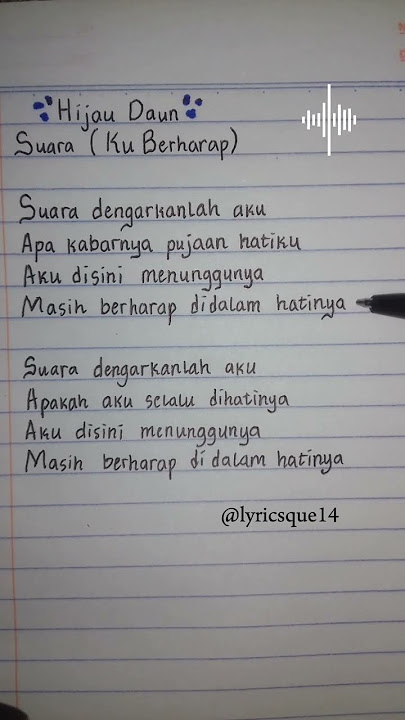 Hijau Daun
Suara (Ku Berharap)
Suara dengarkanlah aku
Apa kabarnya pujaan hatiku
Aku disini menunggunya
Masih berharap didalam hatinya
Suara dengarkanlah aku
Apakah aku selalu dihatinya
Aku disini menunggunya
Masih berharap di dalam hatinya
@lyricsque14